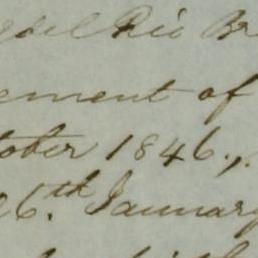 del Rio Br
ement of
tober 1846.,
26.th January